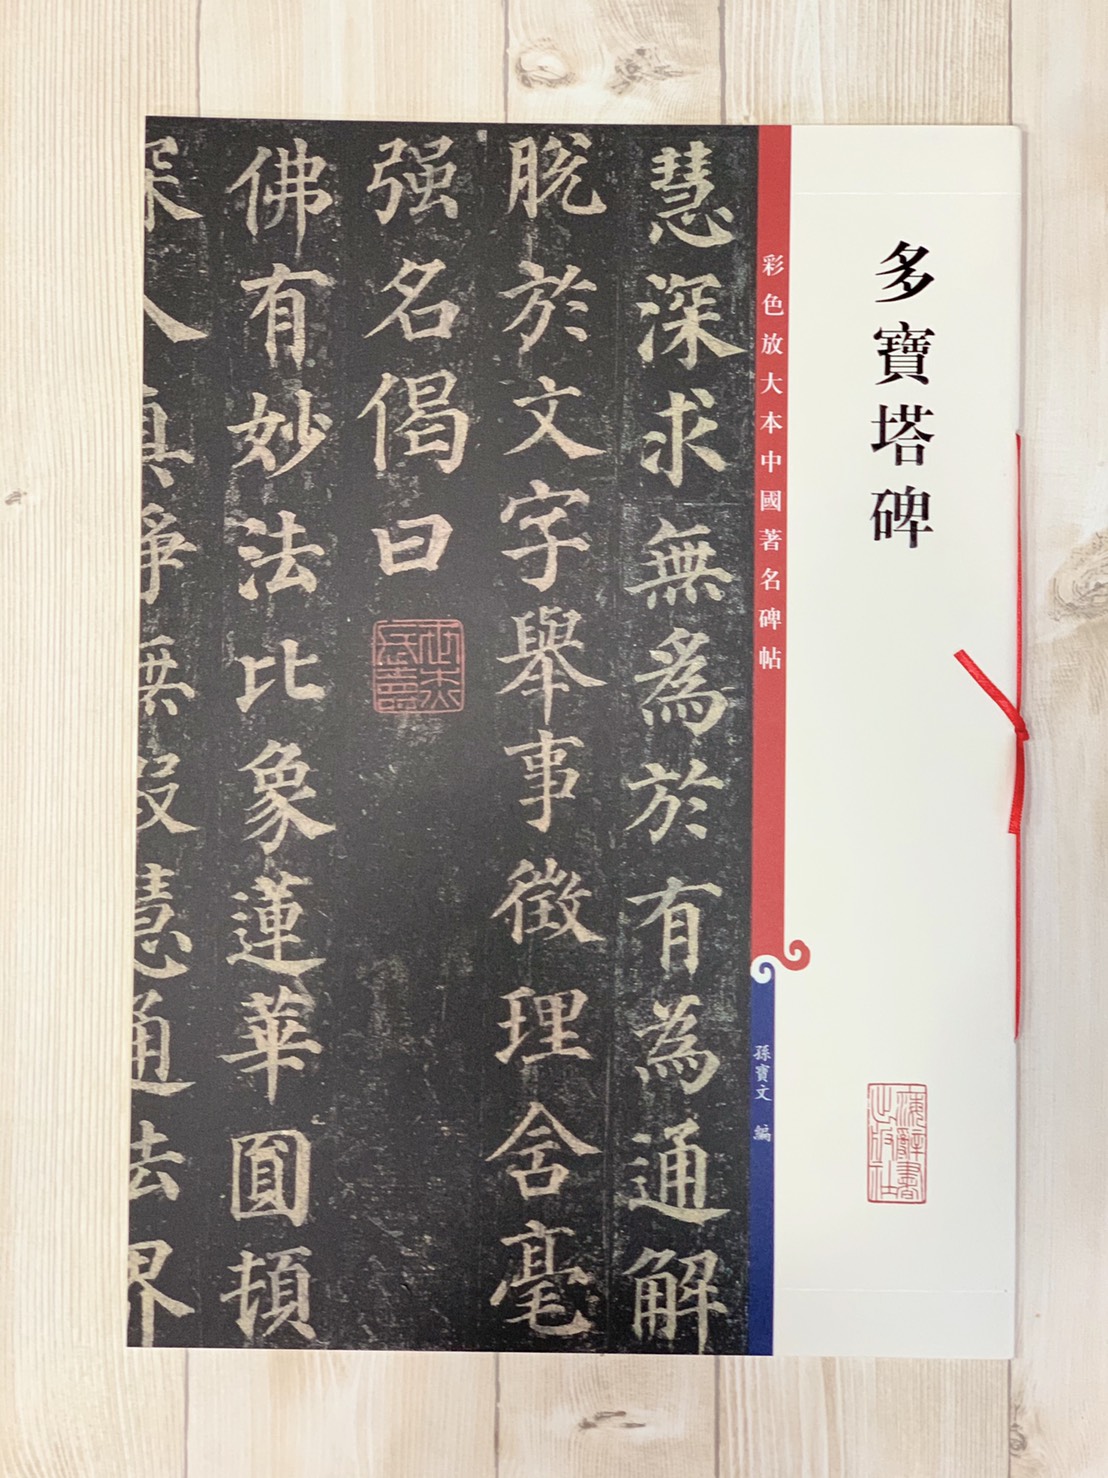 多寶塔碑
彩色放大本中國著名碑帖
孫寶文 編
上海辭書出版社
慧深求無為於有為通解
脫於文字舉事徵理含毫
强名偈曰
佛有妙法比象蓮華圓頓
深入真淨無段慧通法界